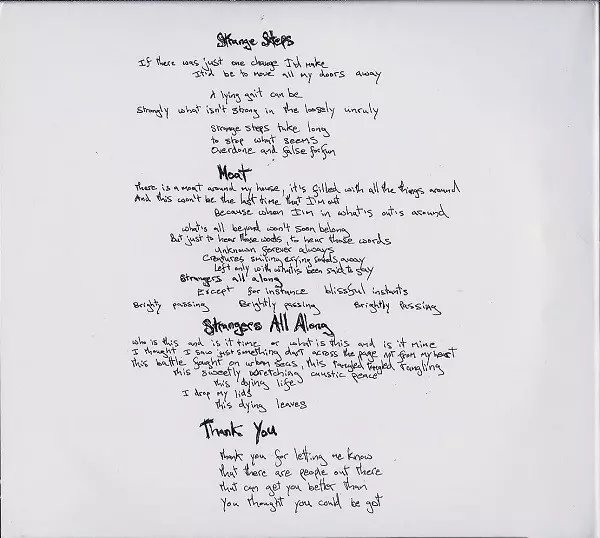 Strange Steps
If there was just one change I'd make
It'd be to move all my doors away
A lying gait can be
Strongly what isn't strong in the loosely unruly
Strange steps take long
to stop what seems
Overdone and false for fun
Moat
there is a moat around my house, it's filled with all the things around
And this won't be the last time that I'm out
Because when I'm in what's out is around
what's all beyond won't soon belong
But just to hear those words, to hear those words
unknown forever always
Creatures smiling crying away
Left only with what's been said to say
Strangers all along
Except for instance blissful instants
Brightly passing Brightly passing Brightly Passing
Strangers All Along
who is this and is it time or what is this and is it mine
I thought I saw just something dart across the page not from my heart
this battle fought on urban seas, this tangled rangling
this sweetly caustic peace
this dying life
I drop my lids
this dying leaves
Thank You
thank you for letting me know
that there are people out there
that can get you better than
you thought you could be got